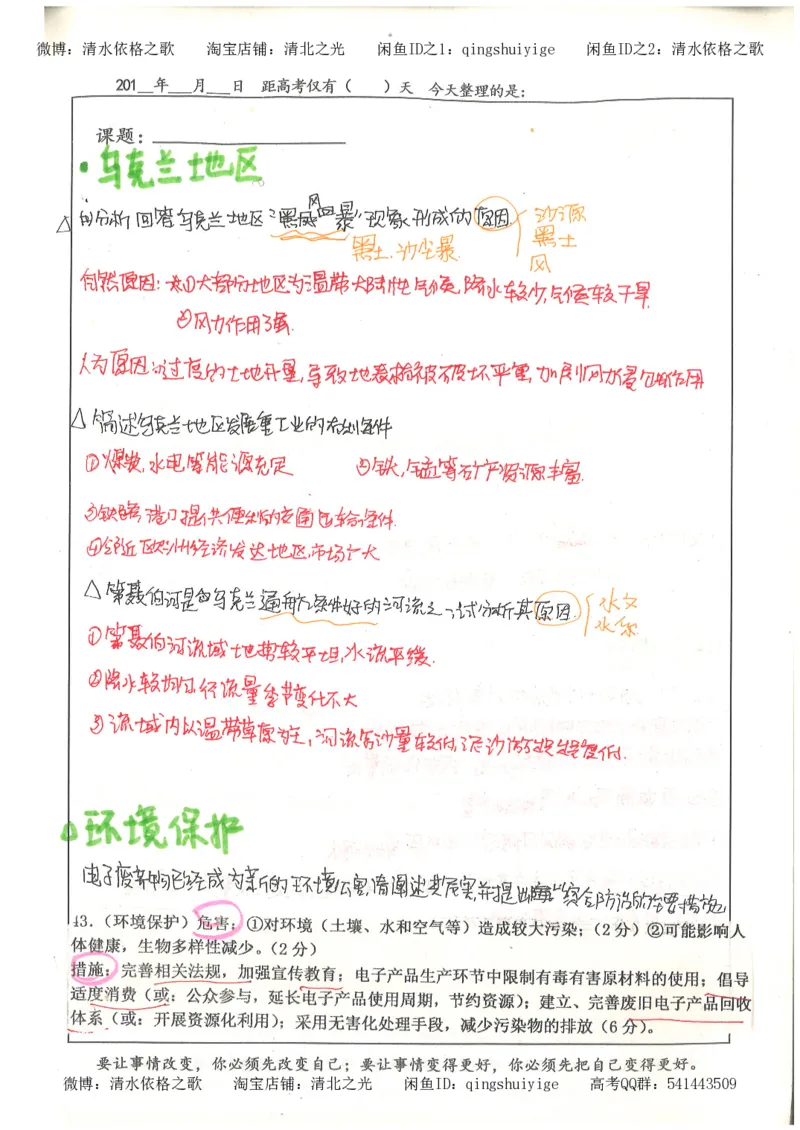 微博：清水依格之歌 淘宝店铺：清北之光 闲鱼ID之1：qingshuiyige 闲鱼ID之2：清水依格之歌
201__年___月___日 距高考仅有（ ）天 今天整理的是：
课题：
·乌克兰地区
△ 分析回答乌克兰地区"黑风暴"现象形成的原因.
风
沙源
黑土
风
黑土.沙尘暴.
自然原因：①大部分地区为温带大陆性气候,降水较少,气候较干旱
②风力作用强.
人为原因：过度的土地开垦,导致地表植被破坏严重,加剧风力侵蚀作用
△简述乌克兰地区发展重工业的有利条件
①煤炭,水电等能源充足 ②铁,锰等矿产资源丰富.
③铁路,港口提供便利的交通运输条件.
④邻近欧洲经济发达地区,市场广大
△第聂伯河是乌克兰通航条件好的河流之一,试分析其原因.
水文
水系
①第聂伯河流域土地带较平坦,水流平缓.
②降水较均匀,径流量季节变化不大
③流域内以温带草原为主,河流含沙量较低,泥沙淤积程度低.
环境保护
电子废弃物已经成为新的环境公害,请阐述其危害,并提出综合防治的主要措施
43.（环境保护）危害：①对环境（土壤、水和空气等）造成较大污染；（2分）②可能影响人
体健康，生物多样性减少。（2分）
措施：完善相关法规，加强宣传教育；电子产品生产环节中限制有毒有害原材料的使用；倡导
适度消费（或：公众参与，延长电子产品使用周期，节约资源）；建立、完善废旧电子产品回收
体系（或：开展资源化利用）；采用无害化处理手段，减少污染物的排放（6分）。
要让事情改变，你必须先改变自己；要让事情变得更好，你必须先把自己变得更好。
微博：清水依格之歌 淘宝店铺：清北之光 闲鱼ID：qingshuiyige 高考QQ群：541443509